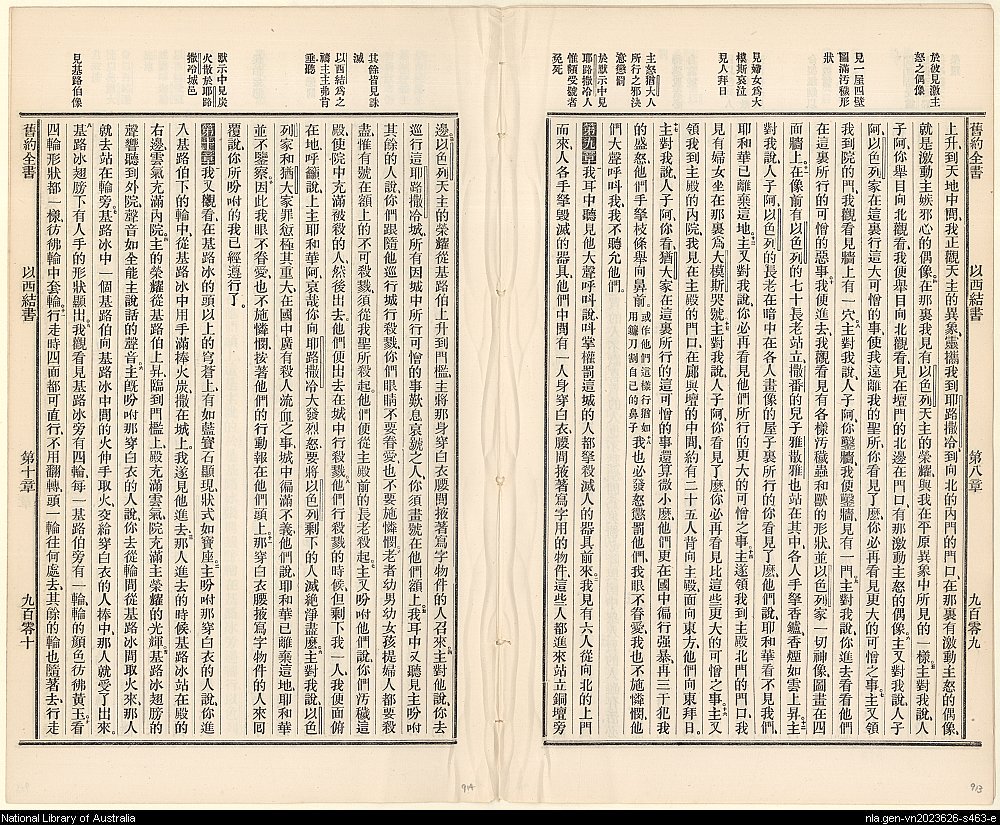 於彼見激主
怒之偶像
見一屋四壁
圖滿汚穢形
狀
見婦女爲大
模斯哀泣
見人拜日
主怒猶大人
所行之邪決
意懲罰
於默示中見
耶路撒冷人
惟額受號者
免死
舊約全書
以西結書
第八章
九百零九
上升到天地中間我正觀天主的異象靈攜我到耶路撒冷到向北的內門的門口在那裏有激動主怒的偶像
就是激動主嫉邪心的偶像在那裏我見有以色列天主的榮耀與我在平原異象中所見的一樣主對我說人
子阿你舉目向北觀看我便舉目向北觀看見在壇門的北邊在門口有那激動主怒的偶像主又對我說人子
阿以色列家在這裏行這大可憎的事使我遠離我的聖所你看見了麽你必再看見更大的可憎之事主又領
我到院的門我觀看見牆上有一穴主對我說人子阿你鑿牆我便鑿牆見有一門主對我說你進去看看他們
在這裏所行的可憎的惡事我便進去我觀看見有各樣汚穢蟲和獸的形狀並以色列家一切神像圖畫在四
面牆上在像前有以色列的七十長老站立撒番的兒子雅散雅也站在其中各人手擎香爐香煙如雲上昇主
對我說人子阿以色列的長老在暗中在各人畫像的屋子裏所行的你看見了麽他們說耶和華看不見我們
耶和華已離棄這地主又對我說你必再看見他們所行的更大的可憎之事主遂領我到主殿北門的門口我
見有婦女坐在那裏爲大模斯哭號主對我說人子阿你看見了麽你必再看見比這些更大的可憎的事主又
領我到主殿的內院我見在主殿的門口在廊與壇的中間約有二十五人背向主殿面向東方他們向東拜日
主對我說人子阿你看猶大家在這裏所行的這可憎的事還算微小麽他們更在國中徧行强暴再三干犯我
的盛怒他們手擎枝條舉向鼻前或作他們這樣行猶如用鐮刀割自己的鼻子我也必發怒懲罰他們我眼不眷愛我也不施憐憫他
們大聲呼叫我我不聽允他們
第九章我耳中聽見他大聲呼叫說叫掌權罰這城的人都擎殺滅人的器具前來我見有六人從向北的上門
而來人各手擎毀滅的器具他們中間有一人身穿白衣腰間掖著寫字用的物件這些人都進來站立銅壇旁
其餘皆見誅
滅
以西結爲之
禱主主弗肯
垂聽
默示中見炭
火散於耶路
撒冷城邑
見基路伯像
邊以色列天主的榮耀從基路伯上升到門檻主將那身穿白衣腰間掖著寫字物件的人召來主對他說你去
巡行這耶路撒冷城所有因城中所行可憎的事歎息哀號之人你須畫號在他們額上我耳中又聽見主吩咐
其餘的人說你們跟隨他巡行城行殺戮你們眼睛不要眷愛也不要施憐憫老者幼男幼女孩提婦人都要殺
盡惟有號在額上的不可殺戮須從我聖所殺起他們便從主殿前的長老殺起主又吩咐他們說你們汚穢這
殿使院中充滿被殺的人然後出去他們便出去在城中行殺戮他們行殺戮的時候但剩下我一人我便面俯
在地呼籲說上主耶和華阿哀哉你向耶路撒冷大發烈怒要將以色列剩下的人滅絕淨盡麽主對我說以色
列家和猶大家罪愆極其重大在國中廣有殺人流血之事城中徧滿不義他們說耶和華已離棄這地耶和華
並不鑒察因此我眼不眷愛也不施憐憫按著他們的行動報在他們頭上那穿白衣腰掖寫字物件的人來囘
覆說你所吩咐的我已經遵行了
第十章我又觀看在基路冰的頭以上的穹蒼上有如藍寶石顯現狀式如寶座主吩咐那穿白衣的人說你進
入基路伯下的輪中從基路冰中用手滿捧火炭撒在城上我遂見他進去那人進去的時候基路冰站在殿的
右邊雲氣充滿內院主的榮耀從基路伯上昇臨到門檻上殿充滿雲氣院充滿主榮耀的光輝基路冰翅膀的
聲響聽到外院聲音如全能主說話的聲音主旣吩咐那穿白衣的人說你去從輪間從基路冰間取火來那人
就去站在輪旁基路冰中一個基路伯向基路冰中間的火伸手取火交給穿白衣的人捧中那人就受了出來
基路冰翅膀下有人手的形狀顯出我觀看見基路冰旁有四輪每一基路伯旁有一輪輪的顏色彷彿黃玉看
四輪形狀都一樣彷彿輪中套輪行走時四面都可直行不用翻轉頭一輪往何處去其餘的輪也隨著去行走
舊約全書
以西結書
第十章
九百零十
914
913
National Library of Australia
nla.gen-vn2023626-s463-e